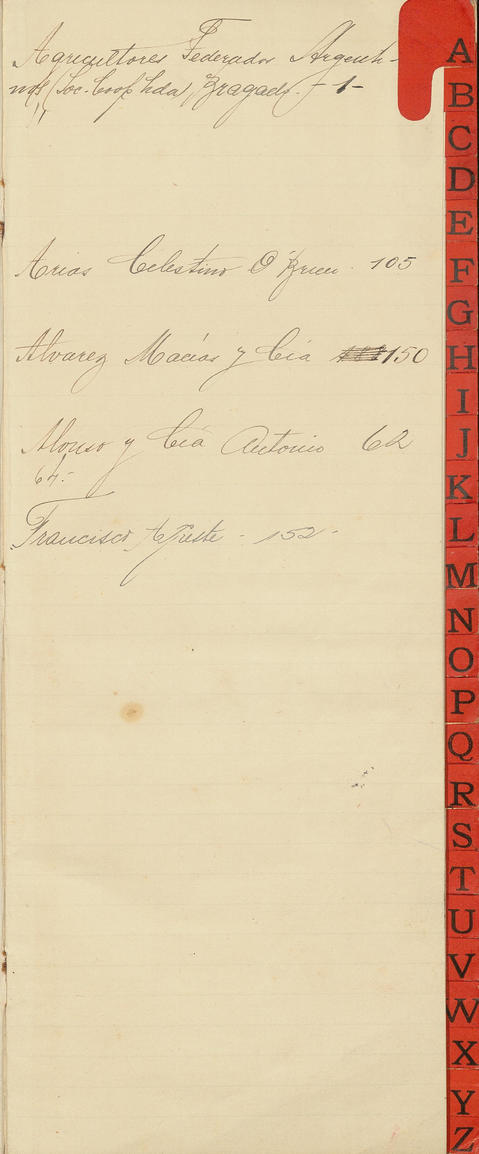 Agricultores Federados Argenti-
nos (Soc. Coop. Ltda) Bragado. - 1 -
Arias Celestino O'Brien. 105
Alvarez Macías y Cía 150
Alonso y Cía Antonio 62
64.-
Francisco - 152 -
A
B
C
D
E
F
G
H
I
J
K
L
M
N
O
P
Q
R
S
T
U
V
W
X
Y
Z